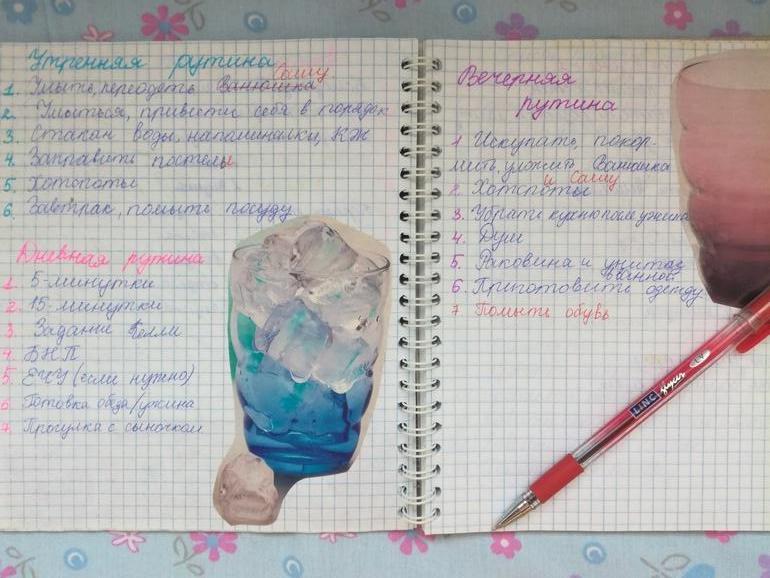 Утренняя рутина
Сашу
1. Умыть, переодеть Ванюшка
2. Умыться, привести себя в порядок
3. Стакан воды, напоминалки, КЖ
4. Заправить постелы
5. Хотспоты
6. Завтрак, помыть посуду
Дневная рутина
1. 5-минутки
2. 15-минутки
3. Задание Келли
4. БНП
5. ЕЧУ (если нужно)
6. Готовка обеда/ужина
7. Прогулка с сыночком
Вечерняя
рутина
1 Искупать, покор-
мить, уложить Ванюшка
и Сашу
2. Хотспоты
3. Убрать кухню после ужина
4. Душ
5. Раковина и унитаз
в ванной
6. Приготовить одежду
7. Помыть обувь
LINC